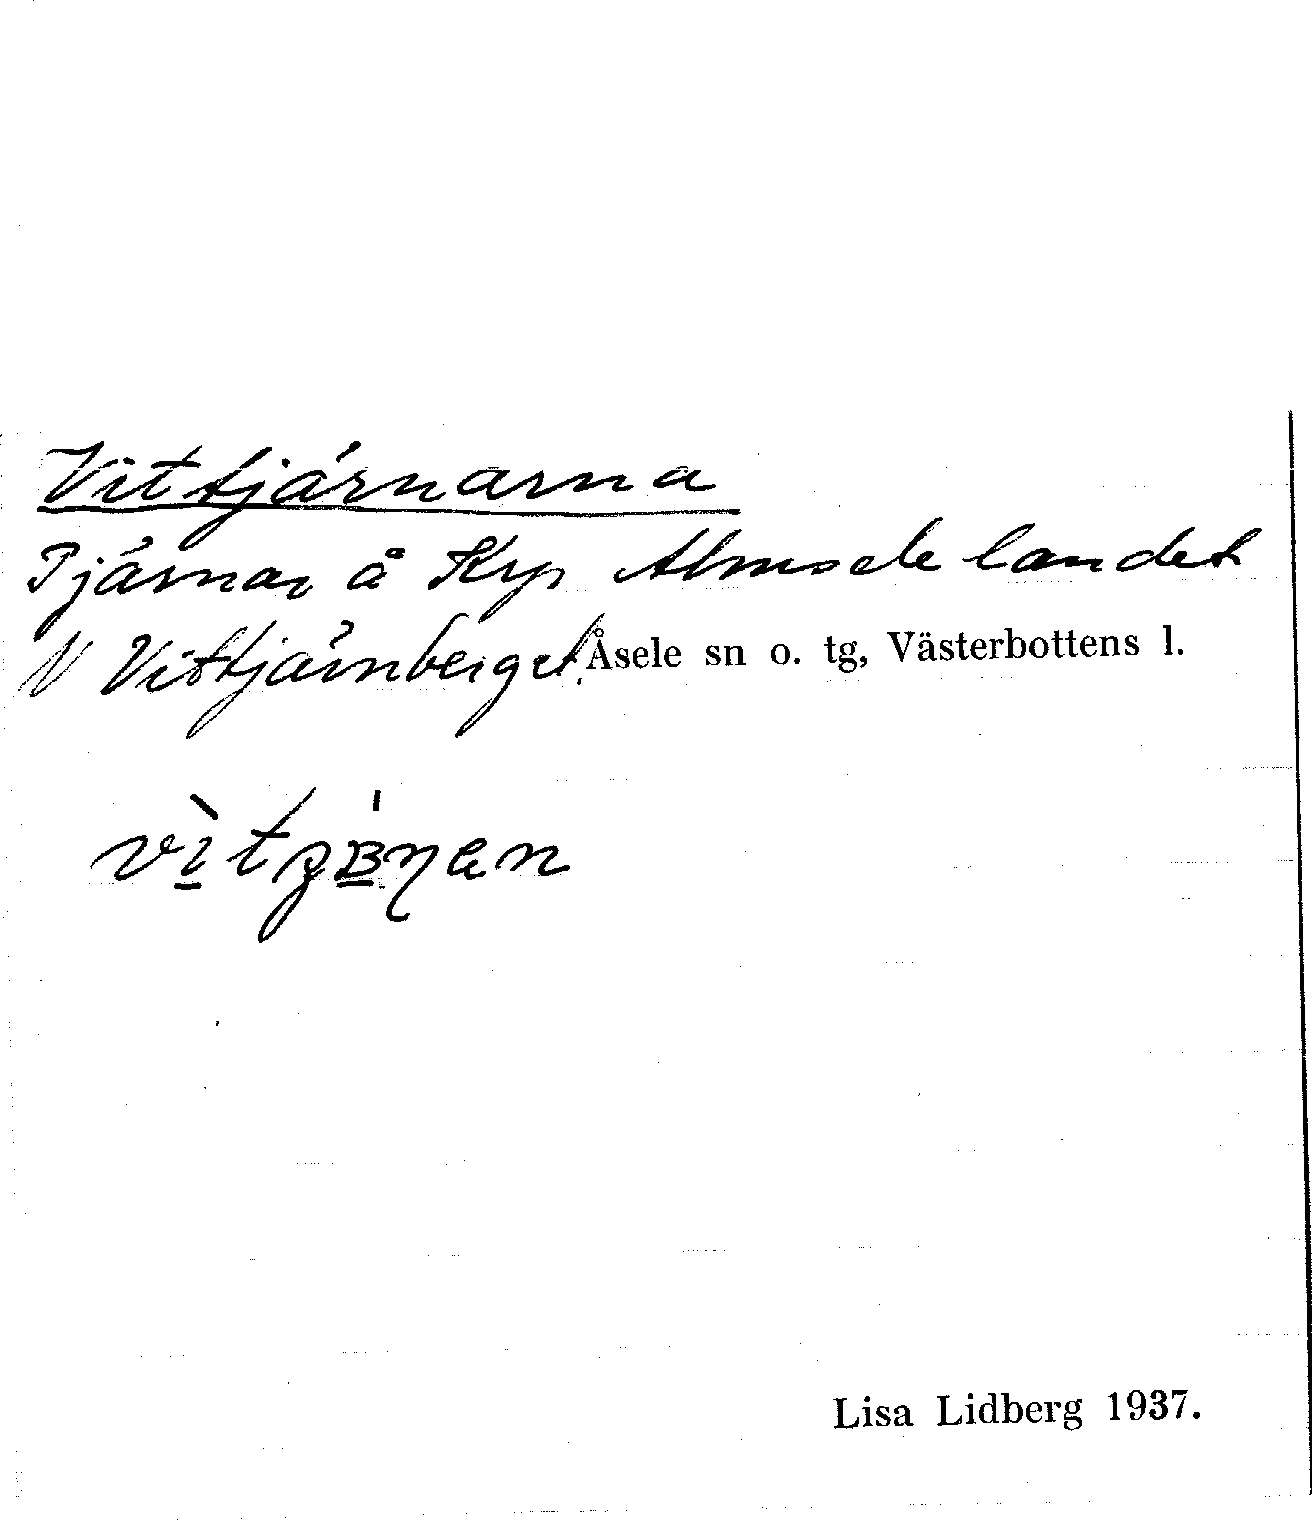 Vittjärnarna
Tjärnar å Krp Almselelandet
N Vittjärnberget. Åsele sn o. tg, Västerbottens l.
Lisa Lidberg 1937.